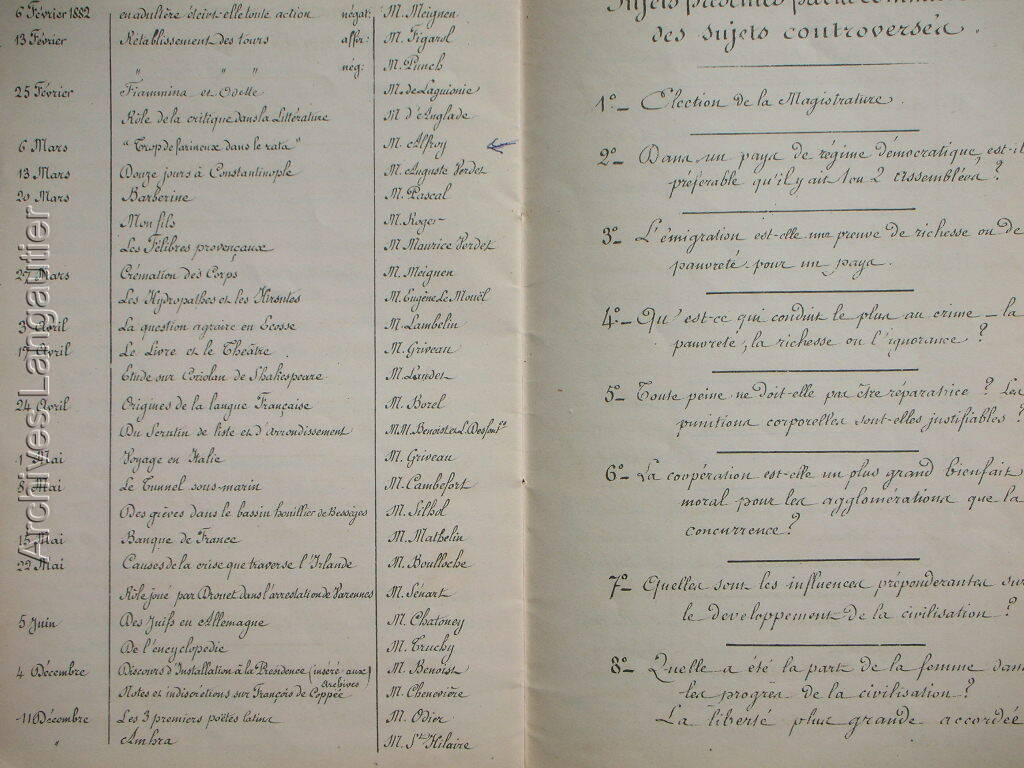 6 Février 1882 en adultère éteint-elle toute action négat: M. Meignen
13 Février Rétablissement des tours affir: M. Figarol
" " " nég: M. Punch
25 Février Fiammina et Odette M. de Laguionie
Rôle de la critique dans la Littérature M d'Anglade
6 Mars "Trop de farineux dans le rata" M. Alfroy
13 Mars Douze jours à Constantinople M. Auguste Verdet
20 Mars Barberine M. Pascal
Mon fils M. Roger
Les Félibres provençaux M Maurice Verdet
27 Mars Crémation des Corps M. Meignen
Les Hydropathes et les Hirsutes M. Eugène Le Mouël
3 Avril La question agraire en Ecosse M. Lambelin
17 Avril Le Livre et le Théâtre. M. Griveau
Etude sur Coriolan de Shakespeare M. Landet
24 Avril Origines de la langue Française M. Borel
Du Scrutin de liste et d'arrondissement MM. Benoist et L.
1 Mai Voyage en Italie M. Griveau
8 Mai Le Tunnel sous-marin M. Cambefort
Des grèves dans le bassin houillier de Bessèges M. Silhol
15 Mai Banque de France M. Mathelin
22 Mai Causes de la crise que traverse l'Irlande M. Boulloche
Rôle joué par Drouet dans l'arrestation de Varennes M. Sénart
5 Juin Des Juifs en Allemagne M. Chatoney
De l'encyclopédie M. Truchy
4 Décembre Discours d'Installation à la Présidence (inséré aux archives) M. Benoist
Notes et indiscrétions sur François de Coppée M. Chenevière
11 Décembre Les 3 premiers poëtes latins M. Odier
" Ambra M. St Hilaire
Sujets présentés par la
des sujets controversés.
1º_ Election de la Magistrature.
2º_ Dans un pays de régime démocratique, est-il
préférable qu'il y ait 1 ou 2 Assemblées?
3º_ L'émigration est-elle une preuve de richesse ou de
pauvreté pour un pays.
4º_ Qu'est-ce qui conduit le plus au crime _ la
pauvreté, la richesse ou l'ignorance?
5º_ Toute peine ne doit-elle pas être réparatrice? Les
punitions corporelles sont-elles justifiables?
6º_ La coopération est-elle un plus grand bienfait
moral pour les agglomérations que la
concurrence?
7º_ Quelles sont les influences prépondérantes sur
le développement de la civilisation?
8º_ Quelle a été la part de la femme dans
les progrès de la civilisation?
La liberté plus grande accordée
Archives Langautier